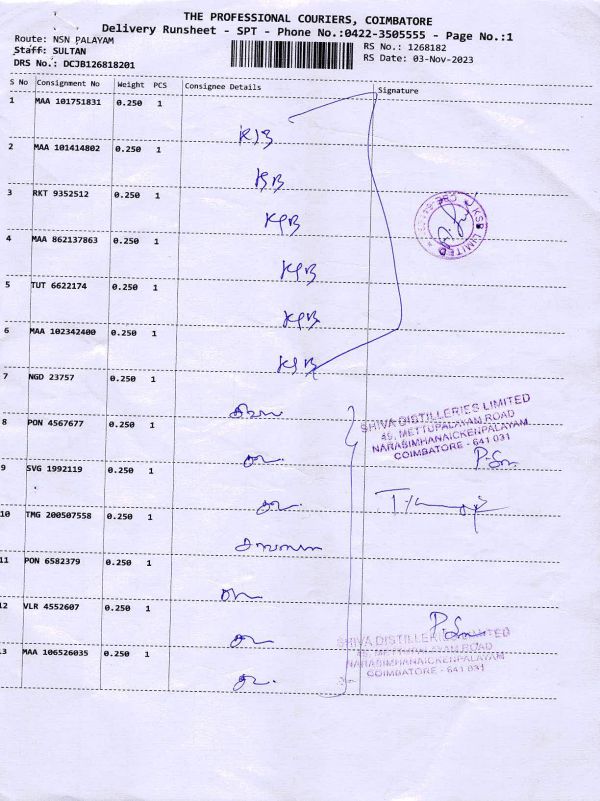 THE PROFESSIONAL COURIERS, COIMBATORE
Delivery Runsheet - SPT - Phone No.:0422-3505555 - Page No.:1
Route: NSN PALAYAM
RS No.: 1268182
Staff: SULTAN
RS Date: 03-Nov-2023
DRS No.: DCJB126818201
S No Consignment No Weight PCS Consignee Details Signature
1 MAA 101751831 0.250 1
2 MAA 101414802 0.250 1
KSB
3 RKT 9352512 0.250 1
KSB
KSB LIMITED
4 MAA 862137863 0.250 1
KSB
5 TUT 6622174 0.250 1
KSB
6 MAA 102342400 0.250 1
KSB
7 NGD 23757 0.250 1
SHIVA DISTILLERIES LIMITED
8 PON 4567677 0.250 1
45, METTUPALAYAM ROAD
NARASIMHANAICKENPALAYAM
COIMBATORE - 641 031
9 SVG 1992119 0.250 1
10 TMG 200507558 0.250 1
11 PON 6582379 0.250 1
12 VLR 4552607 0.250 1
SHIVA DISTILLERIES LIMITED
45, METTUPALAYAM ROAD
13 MAA 106526035 0.250 1
NARASIMHANAICKENPALAYAM
COIMBATORE - 641 031